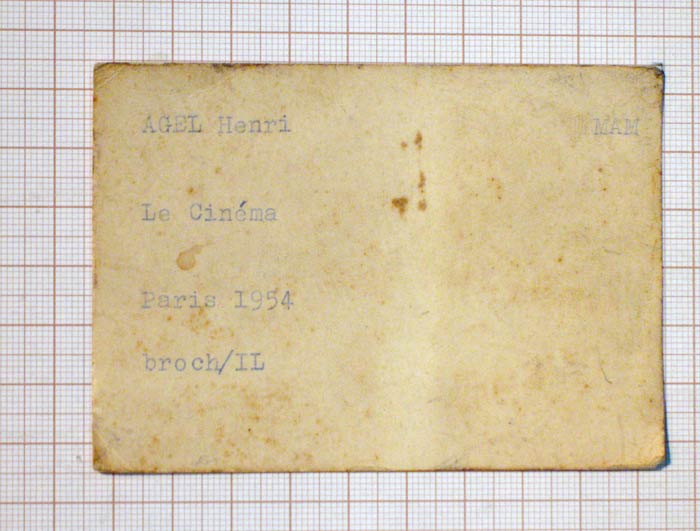 AGEL Henri MAM
Le Cinéma
Paris 1954
broch/IL